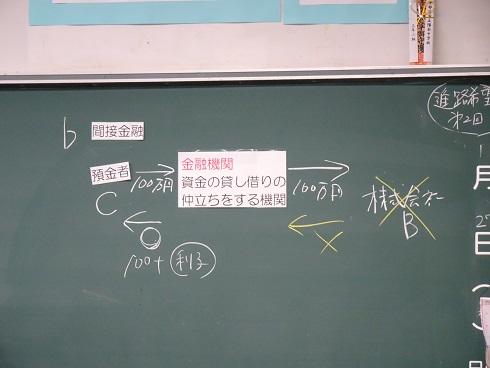 b 間接金融
預金者
C
100万円
金融機関
資金の貸し借りの
仲立ちをする機関
100万円
株式会社
B
100+利子
進路希望
第2回
月
日